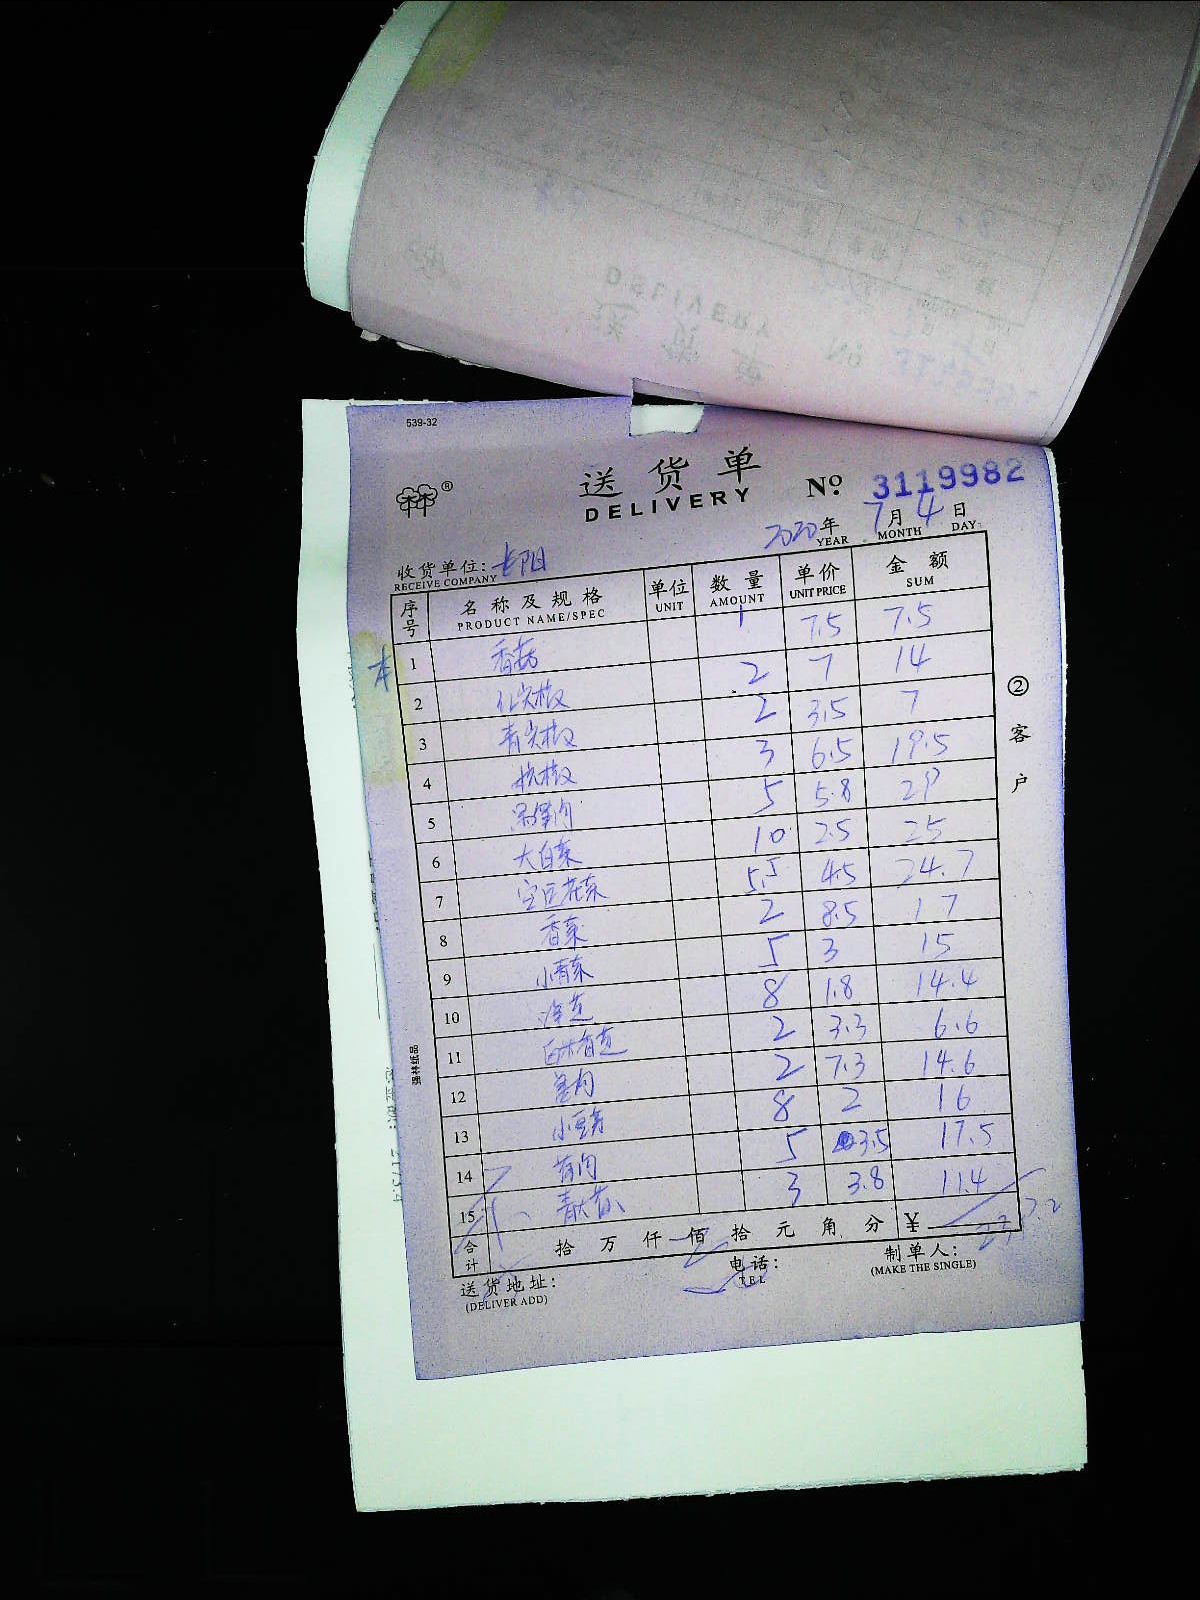 539-32
送货单
DELIVERY
No 3119982
2020年 7月 4日
YEAR MONTH DAY
收货单位: 长阳
RECEIVE COMPANY
序号 名称及规格 单位 数量 单价 金额
PRODUCT NAME/SPEC UNIT AMOUNT UNIT PRICE SUM
1 香菇 1 7.5 7.5
2 红尖椒 2 7 14
3 青尖椒 2 3.5 7
4 杭椒 3 6.5 19.5
5 5 5.8 29
6 大白菜 10 2.5 25
7 5.5 4.5 24.7
8 香菜 2 8.5 17
9 小青菜 5 3 15
10 洋芋 8 1.8 14.4
11 2 3.3 6.6
12 2 7.3 14.6
13 8 2 16
14 5 3.5 17.5
15 3 3.8 11.4
合计 拾万仟佰拾元角分 ¥
送货地址:
(DELIVER ADD)
电话:
TEL
制单人:
(MAKE THE SINGLE)
②客户
强林纸品